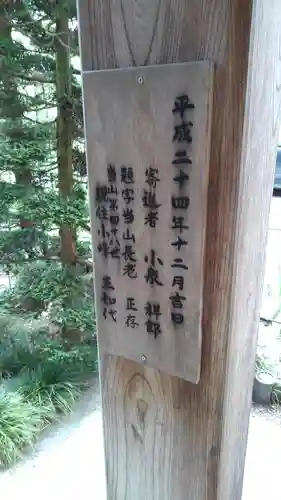 平成二十四年十二月吉日
寄進者 小泉
題字当山長老 正存
当山第四十八世
現住小峰